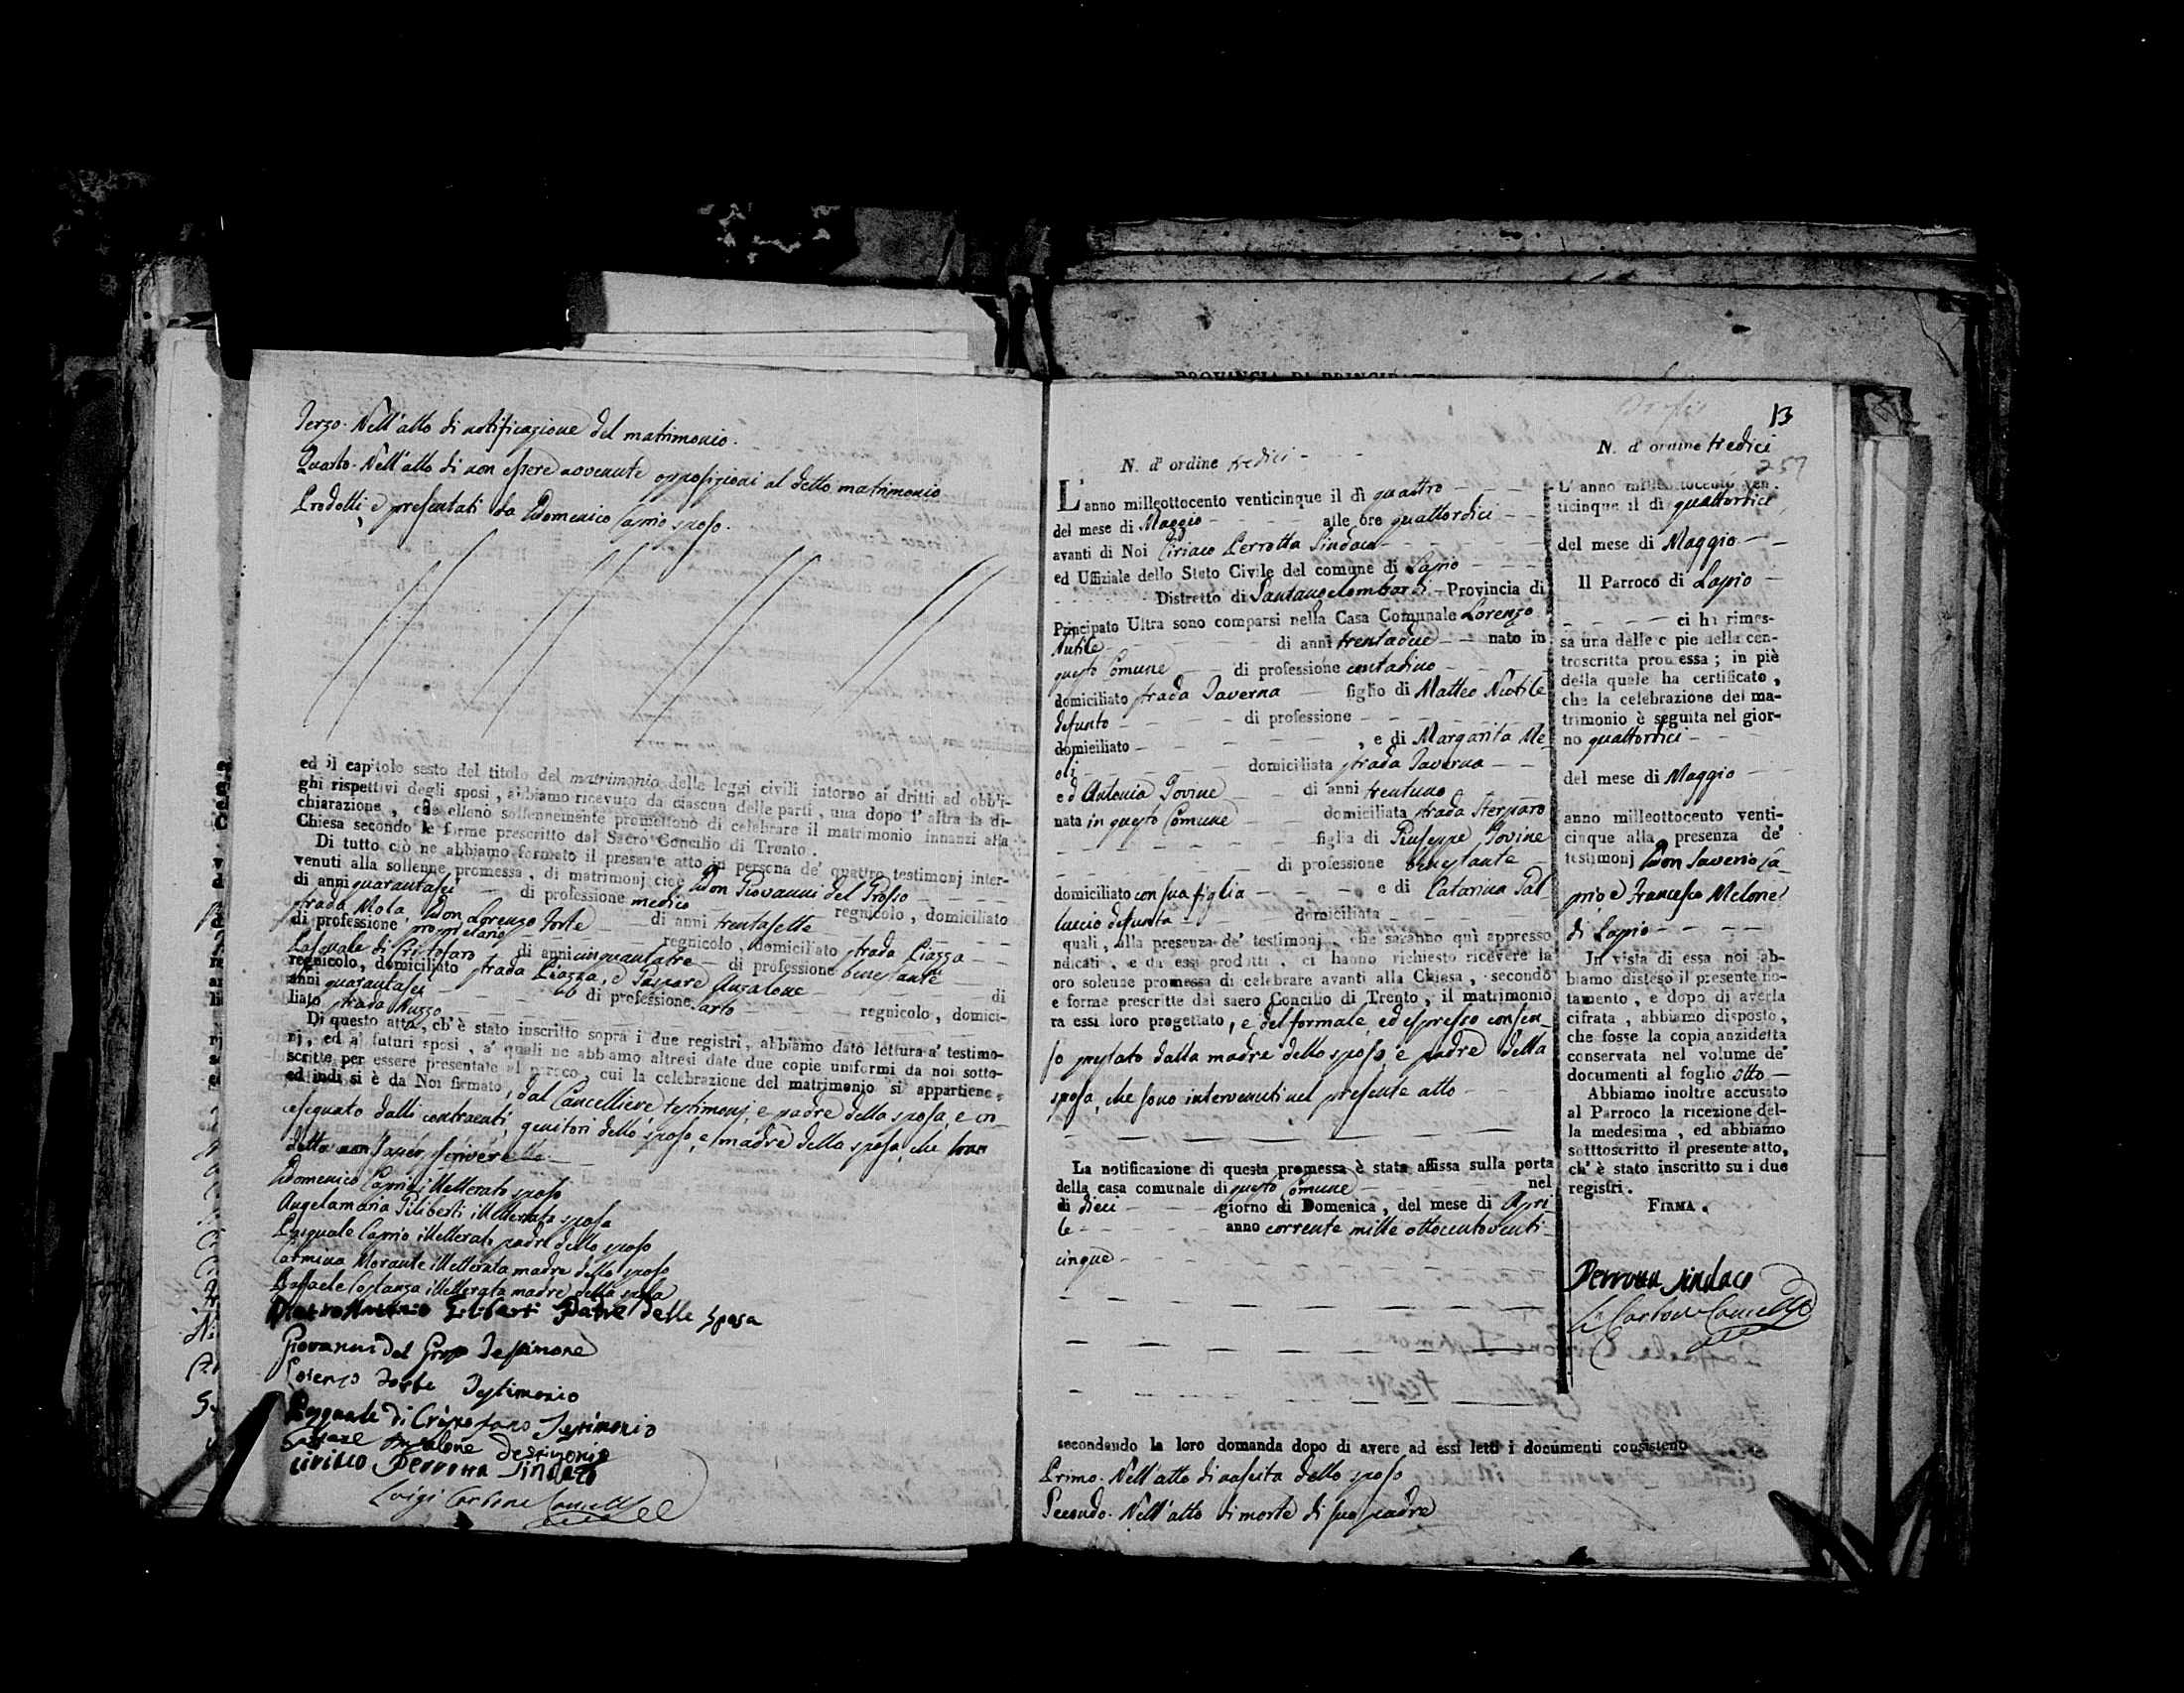 Terzo. Nell'atto di notificazione del matrimonio.
Quarto. Nell'atto di non essere avvenute opposizioni al detto matrimonio
Prodotti, e presentati da Domenico Caprio sposo.
ed il capitolo sesto del titolo del matrimonio delle leggi civili intorno ai dritti ad obbli-
ghi rispettivi degli sposi, abbiamo ricevuto da ciascun delle parti, una dopo l'altra la di-
chiarazione, che elleno sollennemente promettono di celebrare il matrimonio innanzi alla
Chiesa secondo le forme prescritto dal Sacro Concilio di Trento.
Di tutto ciò ne abbiamo formato il presente atto in persona de' quattro testimonj inter-
venuti alla sollenne promessa, di matrimonj cioè Don Giovanni del Grosso
di anni quarantasei di professione medico regnicolo, domiciliato
strada Mola, Don Lorenzo Forte di anni trentasette
di professione proprietario regnicolo, domiciliato strada Piazza
Pasquale di Cristofaro di anni cinquantatre di professione benestante
regnicolo, domiciliato strada Piazza, e Gaspare Anzalone di
anni quarantasei di professione sarto regnicolo, domici-
liato strada Nuzzo
Di questo atto, ch'è stato inscritto sopra i due registri, abbiamo dato lettura a' testimo-
nj, ed a' futuri sposi, a' quali ne abbiamo altresì date due copie uniformi da noi sotto-
scritte per essere presentate al parroco, cui la celebrazione del matrimonio si appartiene,
ed indi si è da Noi firmato, dal Cancelliere, testimonj, e padre della sposa, e cro
cesegnato dalli contraenti, genitori dello sposo, e madre della sposa, che han
detto non saper scrivere
Domenico Caprio illetterato sposo
Angelamaria Giliberti illetterata sposa
Pasquale Caprio illetterato padre dello sposo
Carmina Morante illetterata madre dello sposo
Raffaele Costanza illetterata madre della sposa
Giliberti Padre delle sposa
Giovanni del Grosso Testimone
Lorenzo Forte Testimonio
Pasquale di Cristofano Testimonio
Gaspare Anzalone Testimonio
Ciriaco Perrotta Sindaco
Luigi Carbone Cancelliere
13
N. d'ordine tredici
L'anno milleottocento venticinque il dì quattro
del mese di Maggio alle ore quattordici
avanti di Noi Ciriaco Perrotta Sindaco
ed Uffiziale dello Stato Civile del comune di Lapio
Distretto di Santangelolombardi Provincia di
Principato Ultra sono comparsi nella Casa Comunale Lorenzo
Nutile di anni trentadue nato in
questo Comune di professione contadino
domiciliato strada Taverna figlio di Matteo Nutile
defunto di professione
domiciliato , e di Margarita Me
oli domiciliata strada Taverna
ed Antonia Jovine di anni trentuno
nata in questo Comune domiciliata strada Sterparo
figlia di Giuseppe Jovine
di professione benestante
domiciliato con sua figlia e di Catarina Gal
luccio defunta domiciliata
quali, alla presenza de' testimonj, che saranno quì appresso
ndicati, e da essi prodotti, ci hanno richiesto ricevere la
oro solenne promessa di celebrare avanti alla Chiesa, secondo
e forme prescritte dal sacro Concilio di Trento, il matrimonio
ra essi loro progettato, e del formale, ed espresso consen-
so prestato dalla madre dello sposo e padre della
sposa, che sono intervenuti nel presente atto
La notificazione di questa promessa è stata affissa sulla porta
della casa comunale di questo Comune nel
dì dieci giorno di Domenica, del mese di Apri
le anno corrente mille ottocentoventi
cinque
secondando la loro domanda dopo di avere ad essi letti i documenti consisteno
Primo. Nell'atto di nascita dello sposo
Secondo. Nell'atto di morte di suo padre
N. d'ordine tredici
257
L'anno milleottocento ven-
ticinque il dì quattordici
del mese di Maggio
Il Parroco di Lapio
ci ha rimes-
sa una delle copie della cen-
troscritta promessa; in piè
della quale ha certificato,
che la celebrazione del ma-
trimonio è seguita nel gior-
no quattordici
del mese di Maggio
anno milleottocento venti-
cinque alla presenza de'
testimonj Don Saverio Ca-
prio e Francesco Melone
di Lapio
In vista di essa noi ab-
biamo disteso il presente no-
tamento, e dopo di averla
cifrata, abbiamo disposto,
che fosse la copia anzidetta
conservata nel volume de'
documenti al foglio otto
Abbiamo inoltre accusato
al Parroco la ricezione del-
la medesima, ed abbiamo
sotttoscritto il presente atto,
ch'è stato inscritto su i due
registri.
FIRMA.
Perrotta Sindaco
L Carbone Cancelliere